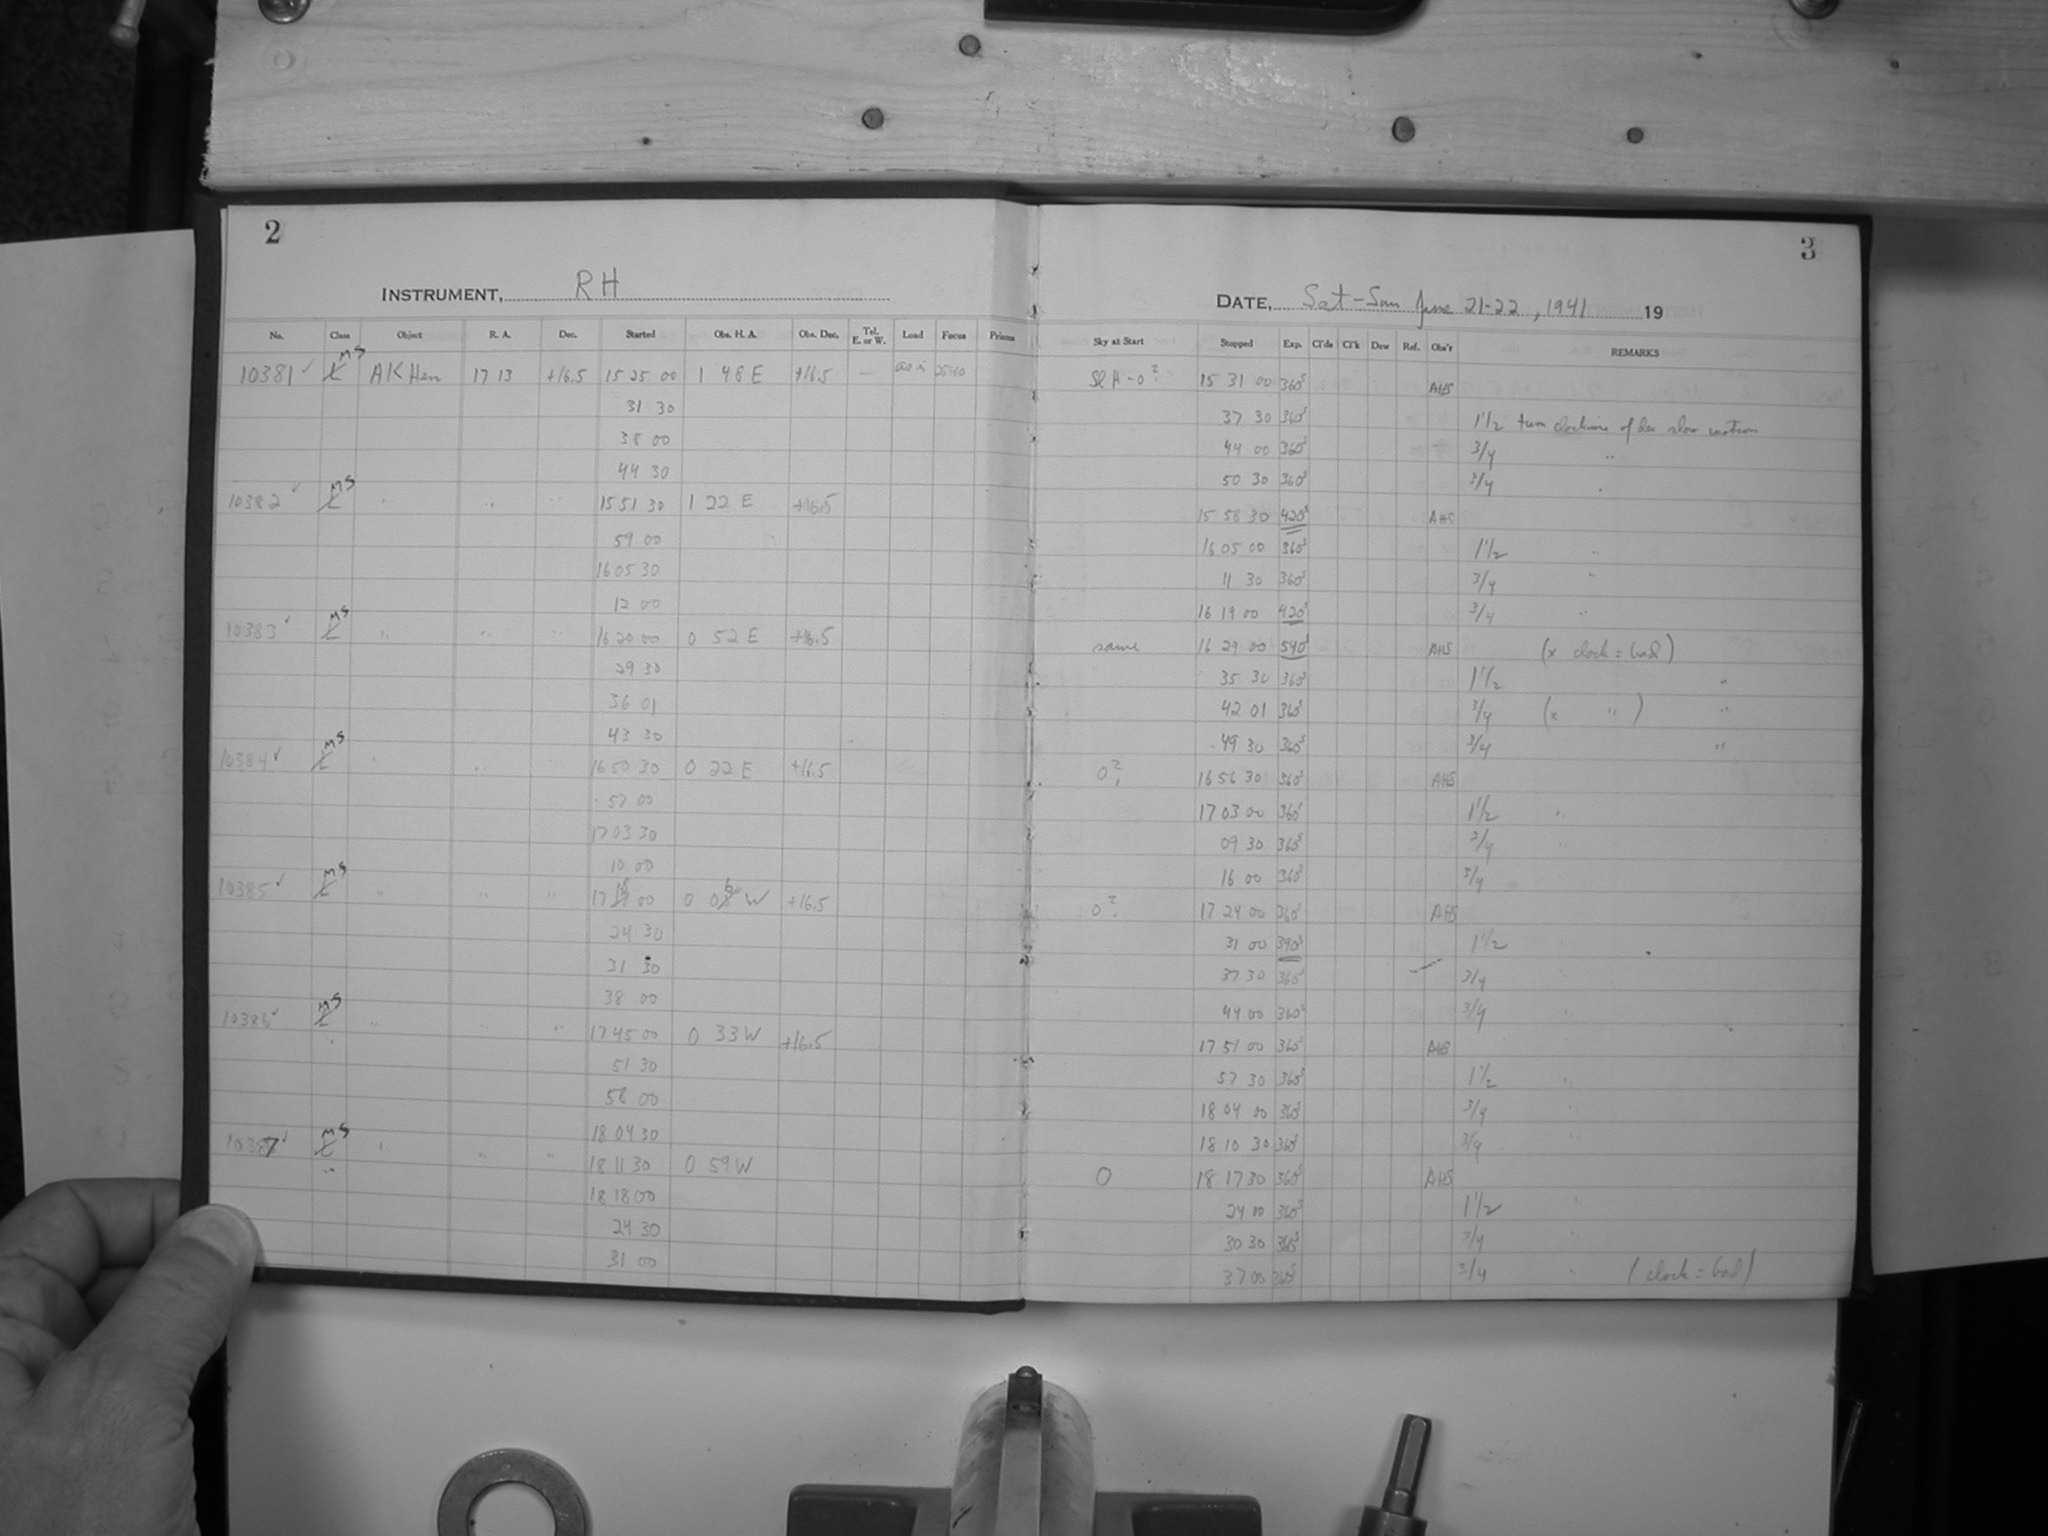 2
INSTRUMENT, RH
No. Class Object R. A. Dec. Started Obs. H. A. Obs. Dec. Tel. E. or W. Load Focus Prisms
10381 ✓ MS AK Her 17 13 +16.5 15 25 00 1 48 E +16.5 —
31 30
38 00
44 30
10382 ✓ MS " " " 15 51 30 1 22 E +16.5
59 00
16 05 30
12 00
10383 ✓ MS " " " 16 20 00 0 52 E +16.5
29 30
36 01
43 30
10384 ✓ MS " " 16 50 30 0 22 E +16.5
57 00
17 03 30
10 00
10385 ✓ MS " " " 17 18 00 0 06 W +16.5
24 30
31 30
38 00
10386 ✓ MS " " " 17 45 00 0 33 W +16.5
51 30
58 00
18 04 30
10387 ✓ MS " " " 18 11 30 0 59 W
18 18 00
24 30
31 00
3
DATE, Sat-Sun June 21-22, 1941 19
Sky at Start Stopped Exp. Cl'ds Cl'k Dew Ref. Obs'r REMARKS
15 31 00 360s AHS
37 30 360s 1 1/2 turn clockwise of dec slow motion
44 00 360s 3/4 "
50 30 360s 3/4 "
15 58 30 420s AHS
16 05 00 360s 1 1/2 "
11 30 360s 3/4 "
16 19 00 420s 3/4 "
same 16 29 00 540s AHS (x clock = bad)
35 30 360s 1 1/2 "
42 01 360s 3/4 (x " ) "
49 30 360s 3/4 "
0? 16 56 30 360s AHS
17 03 00 360s 1 1/2 "
09 30 360s 3/4
16 00 360s 3/4
0? 17 24 00 360s AHS
31 00 390s 1 1/2 "
37 30 360s 3/4
44 00 360s 3/4 "
17 51 00 360s AHS
57 30 360s 1 1/2 "
18 04 00 360s 3/4 "
18 10 30 360s 3/4 "
0 18 17 30 360s AHS
24 00 360s 1 1/2 "
30 30 360s 3/4 "
37 00 360s 3/4 " (clock = bad)